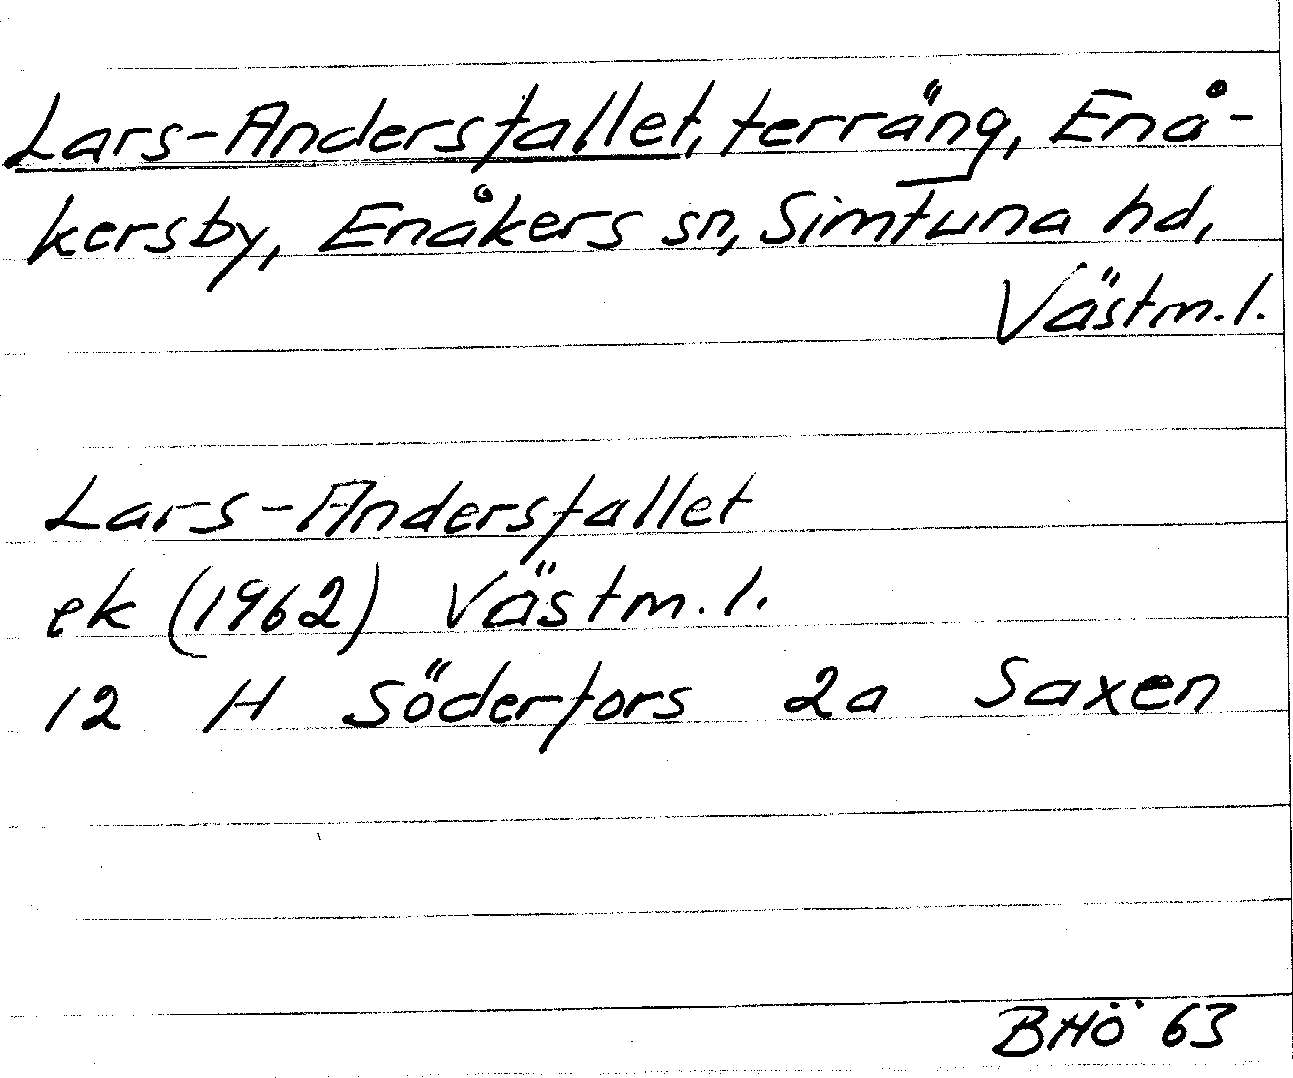 Lars-Andersfallet, terräng, Enå-
kersby, Enåkers sn, Simtuna hd,
Västm. l.
Lars-Andersfallet
ek (1962) Västm. l.
12 H Söderfors 2a Saxen
BHÖ 63